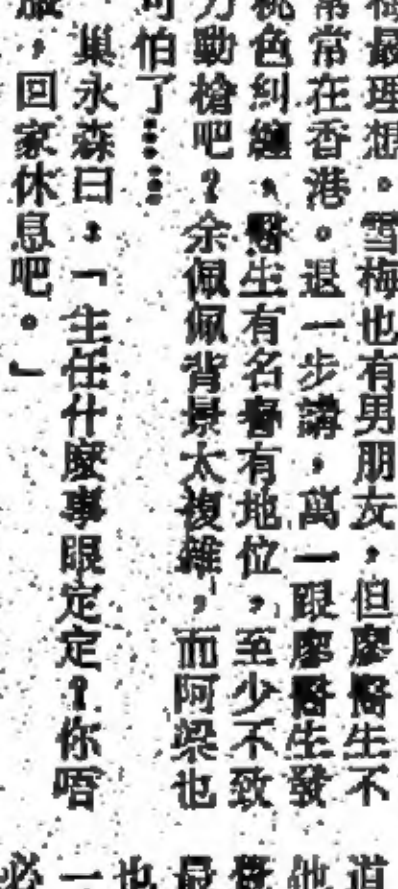 最理想。雪梅也有男朋友,但廖醫生不
常在香港。退一步講,萬一跟廖醫生發
桃色糾纏、醫生有名譽有地位,至少不致
力動槍吧?余佩佩背景太複雜,而阿梁也
可怕了……
巢永森曰:「主任什麼事眼定定?你唔
服,回家休息吧。」
道
他
最
也
一
必